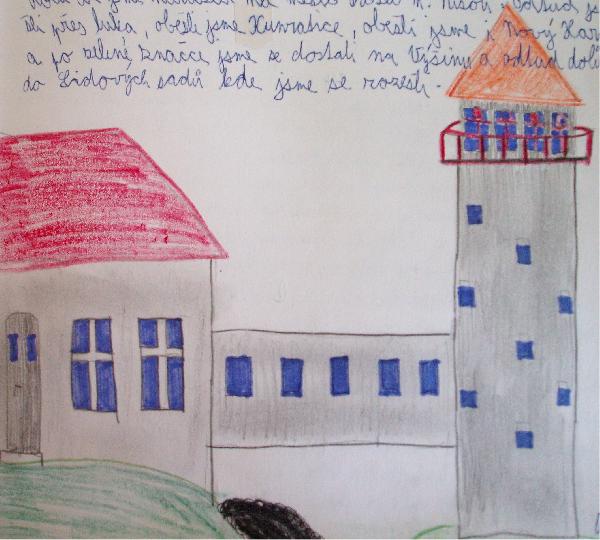 jsme na
šli přes luka, obešli jsme Kunratice, obešli jsme i Nový Har
a po zelené značce jsme se dostali na Výšinu a odtud dolů
do Lidových sadů kde jsme se rozešli.